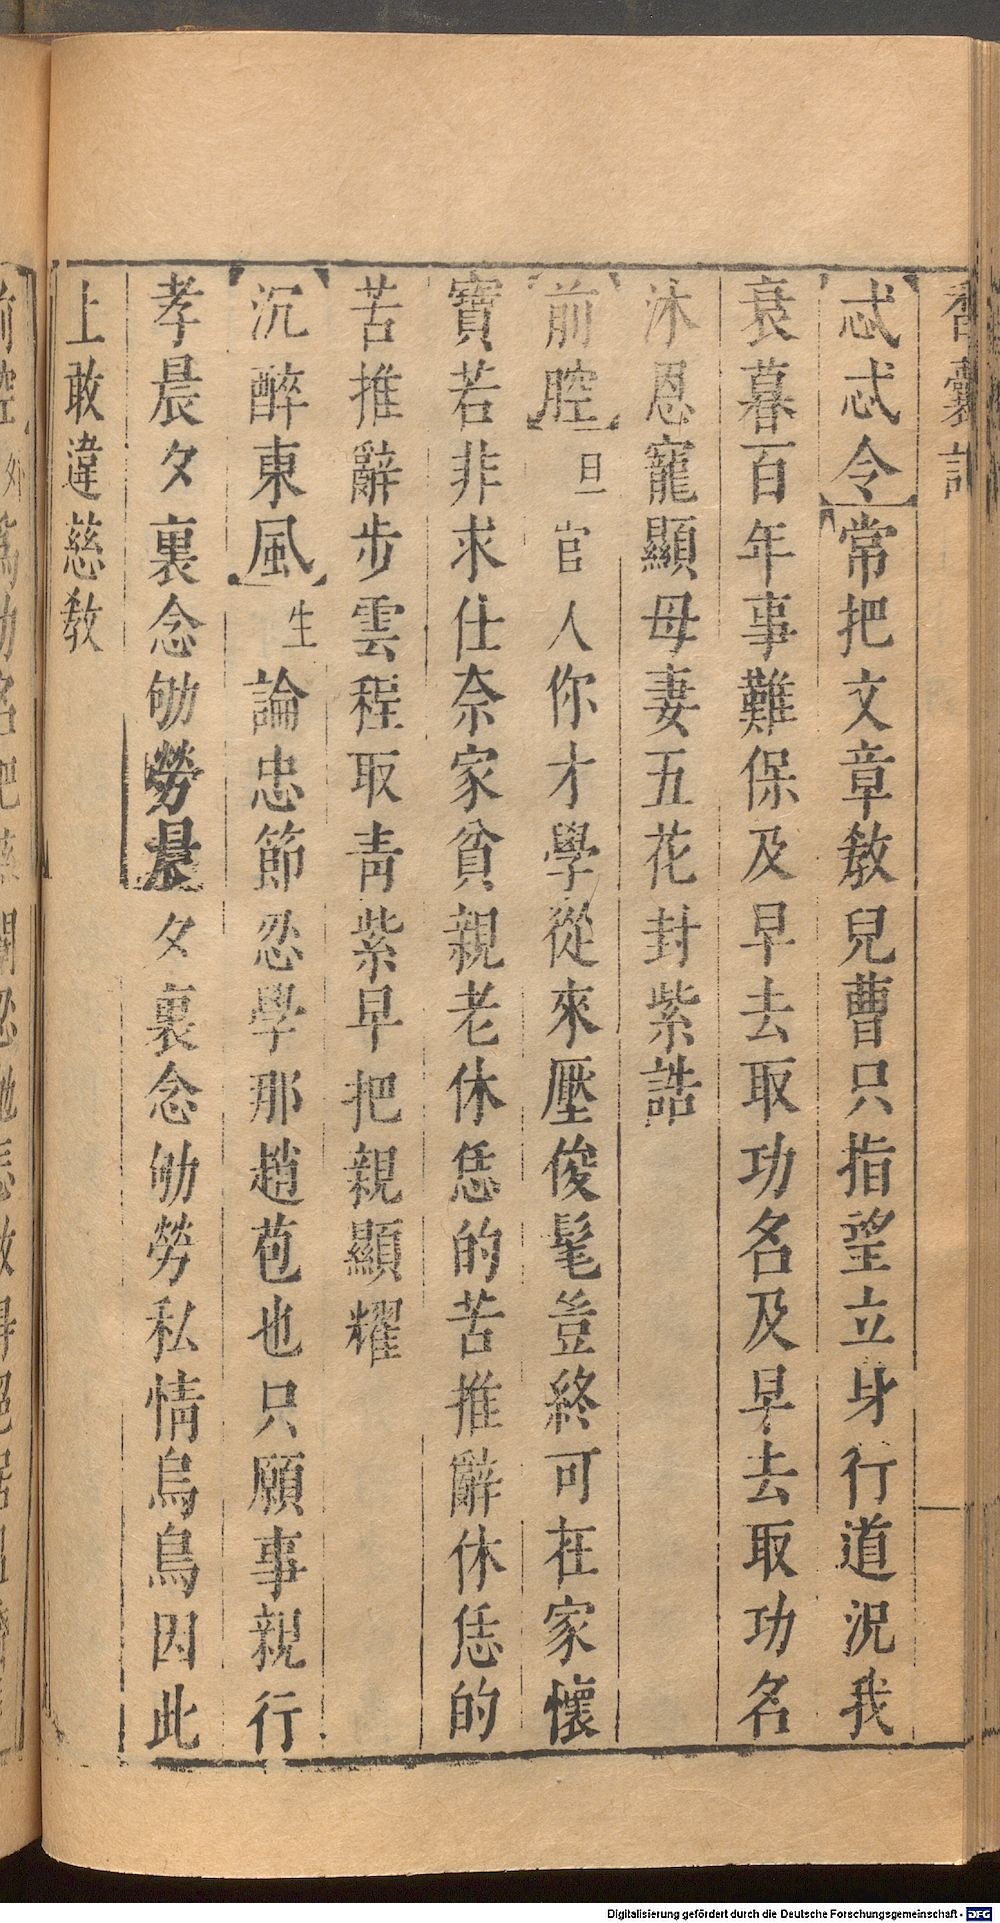 香囊記
忒忒令常把文章教兒曹只指望立身行道況我
衰暮百年事難保及早去取功名及早去取功名
沐恩寵顯母妻五花封紫誥
前腔旦官人你才學從來壓俊髦豈終可在家懷
寶若非求仕奈家貧親老休恁的苦推辭休恁的
苦推辭步雲程取青紫早把親顯耀
沉醉東風生論忠節忍學那趙苞也只願事親行
孝晨夕裏念劬勞晨夕裏念劬勞私情烏鳥因此
上敢違慈教
Digitalisierung gefördert durch die Deutsche Forschungsgemeinschaft - DFG